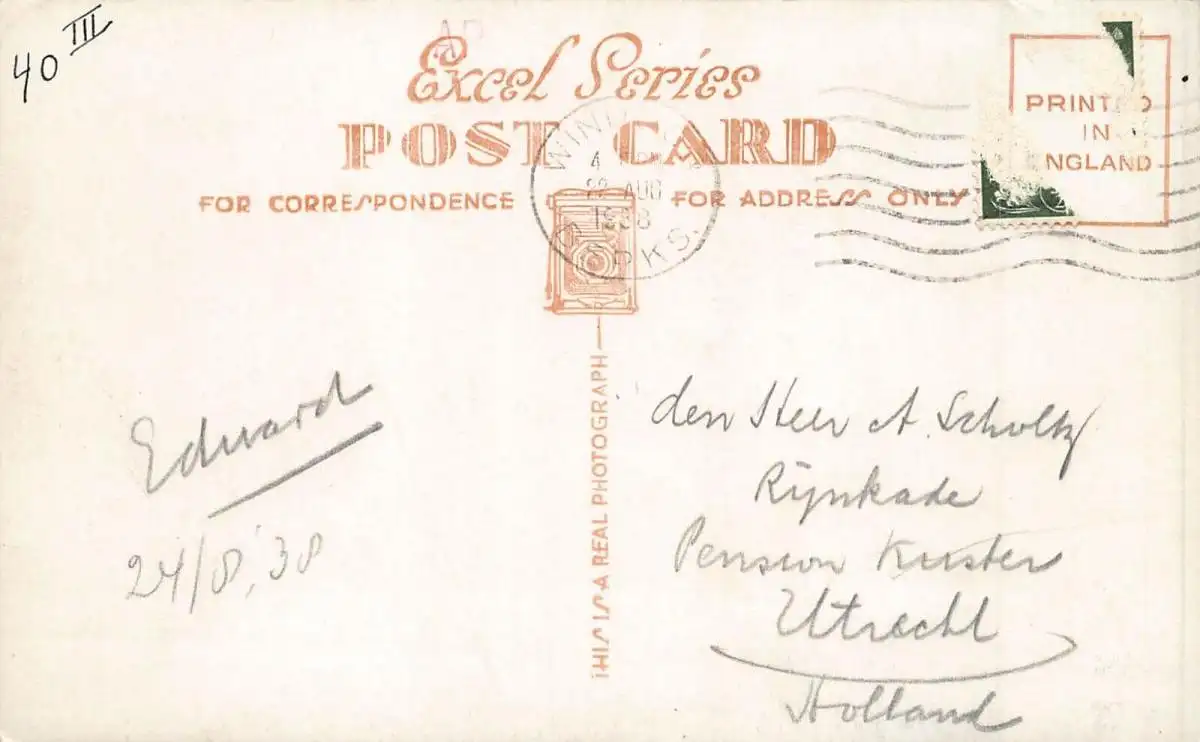 40 III
Excel Series
POST CARD
FOR CORRESPONDENCE FOR ADDRESS ONLY
PRINTED
IN
ENGLAND
WIND
4
22 AUG
1938
BKS.
THIS IS A REAL PHOTOGRAPH
Edward
24/8, '38
den Heer A. Scholtz
Rijnkade
Pension Kuster
Utrecht
Holland